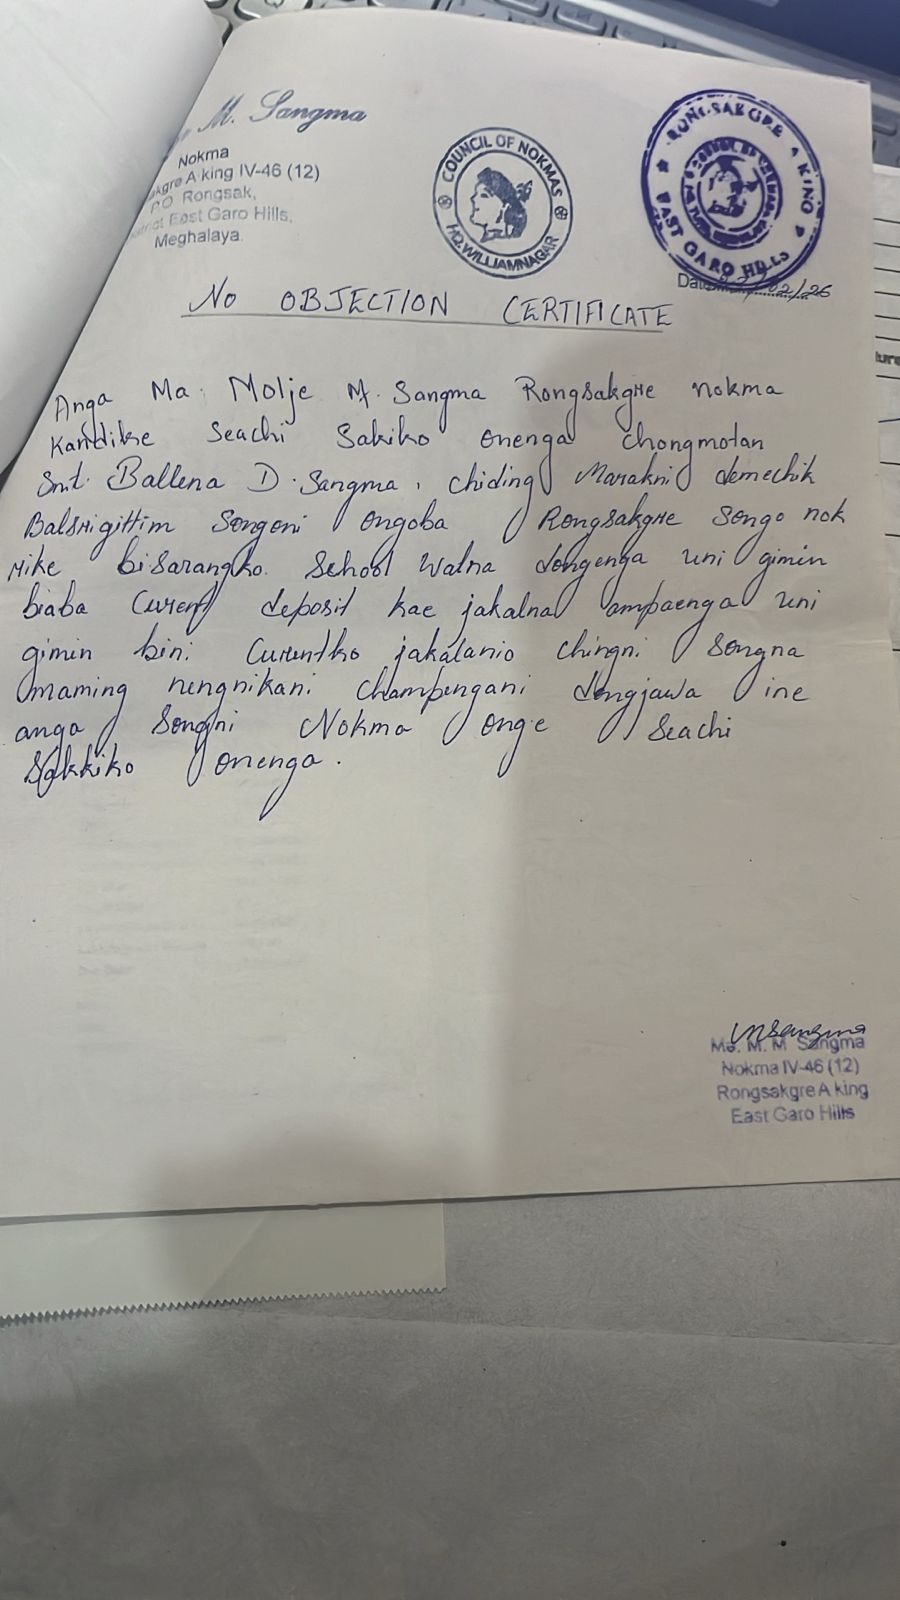 M. Sangma
Nokma
akgre A·king IV-46 (12)
P.O Rongsak,
District East Garo Hills,
Meghalaya.
COUNCIL OF NOKMAS
HQ. WILLIAMNAGAR
RONGSAKGRE A·KING
EAST GARO HILLS
Date 02/26
No OBJECTION CERTIFICATE
Anga Ma. Molje M. Sangma Rongsakgre nokma
Kandikse Seachi Sakiko onenga chongmotan
Smt. Ballena D. Sangma, chiding Marakni demechik
Balsrigittim Songoni ongoba Rongsakgre Songo nok
rike bisarangko School Watna dongenga uni gimin
biaba Curent deposit kae jakalna ampaenga uni
gimin bini Curentko jakalanio chingni Songna
maming nengnikani champengani dongjawa ine
anga Songni Nokma onge Seachi
Sakkiko onenga.
MSangma
Ma. M. M Sangma
Nokma IV-46 (12)
Rongsakgre A·king
East Garo Hills